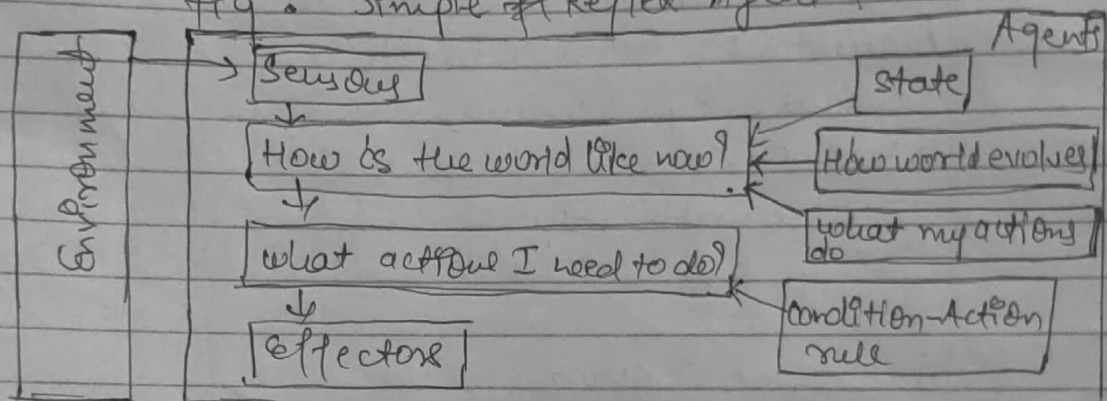 Fig. Simple Reflex Agent
Agents
Environment
Sensors
State
How is the world like now?
How world evolves
What my actions
do
What actions I need to do?
Condition-Action
rule
Effectors